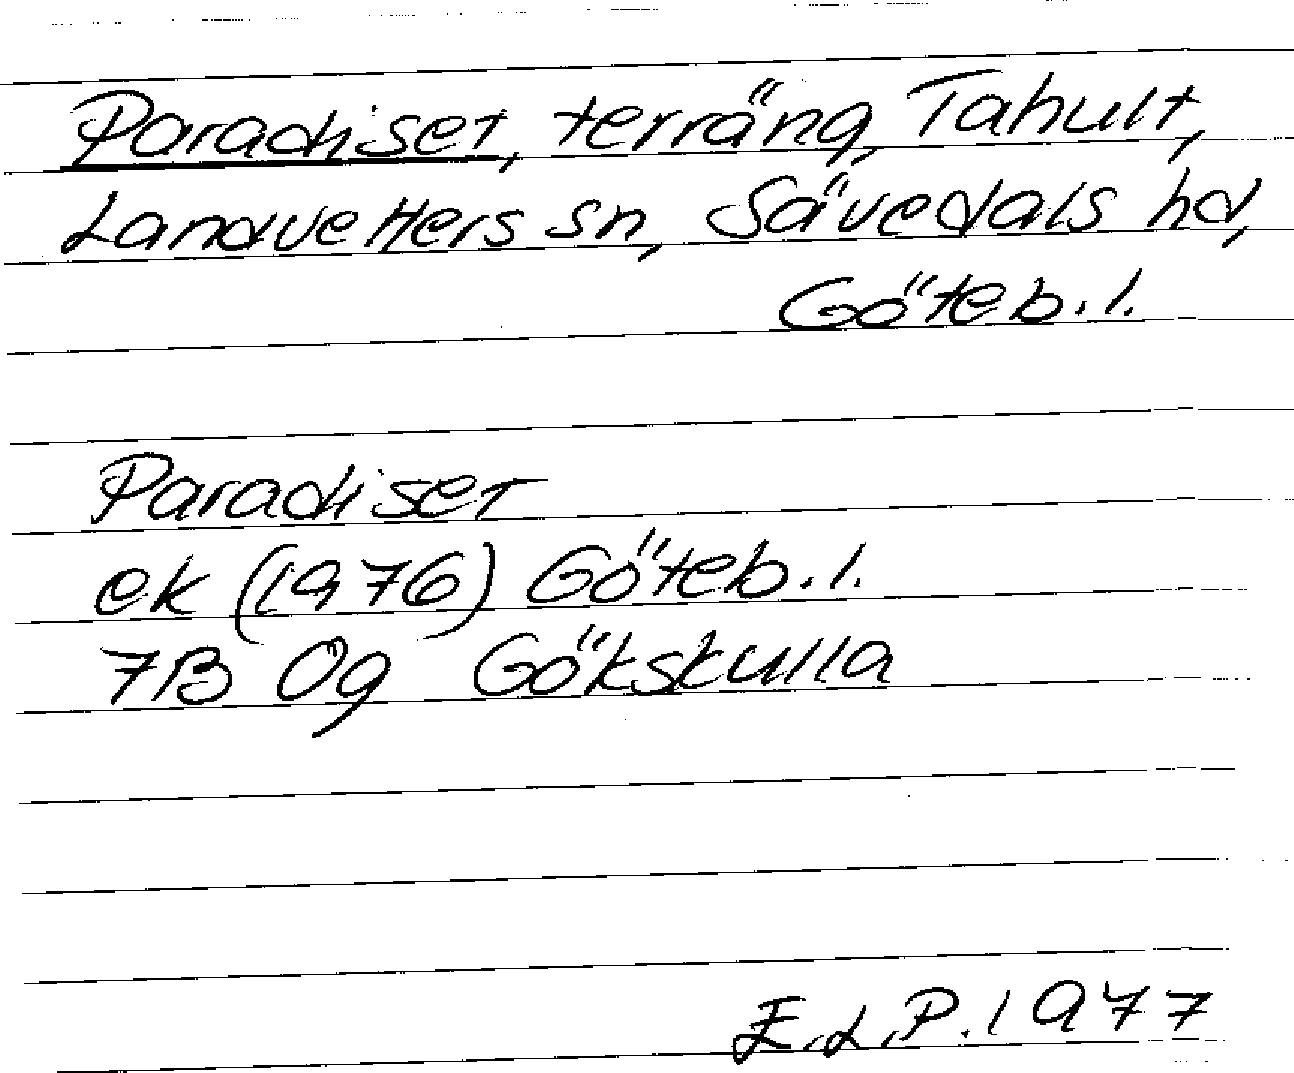 Paradiset, terräng, Tahult,
Landvetters sn, Sävedals hd,
Göteb. l.
Paradiset
ek (1976) Göteb. l.
7B 0g Gökskulla
E.L.P. 1977